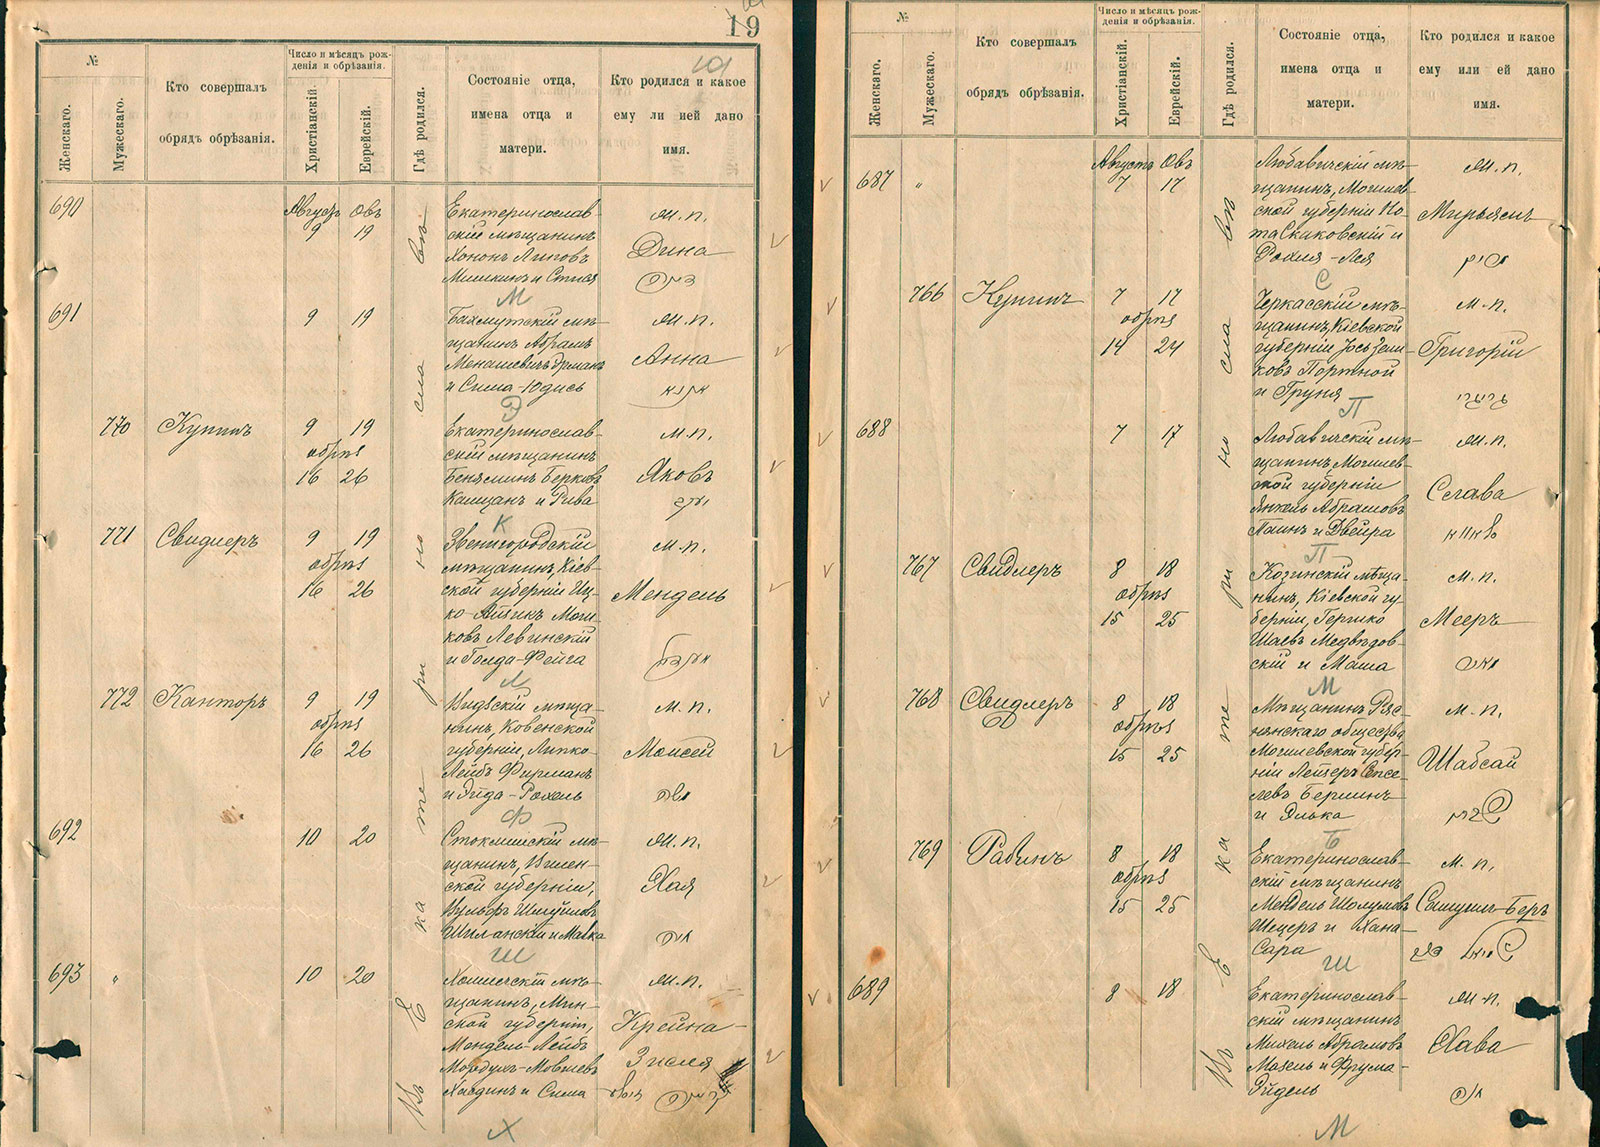 19
№
Женскаго.
Мужескаго.
Кто совершалъ
обрядъ обрѣзанія.
Число и мѣсяцъ рож-
денія и обрѣзанія.
Христіанскій.
Еврейскій.
Гдѣ родился.
Состояніе отца,
имена отца и
матери.
Кто родился и какое
ему ли ией дано
имя.
Въ Екатеринославѣ
690
Августъ Овъ
9 19
Екатеринослав-
скій мѣщанинъ
Хононъ Липовъ
и
м. п.
Дина
М
691
9 19
Бахмутскій мѣ-
щанинъ Абрамъ
Менашевичъ Эрманъ
и Сима-Юдись
м. п.
Анна
Э
770 Купинъ
9 19
обрѣз
16 26
Екатеринослав-
скій мѣщанинъ
Беняминъ Берковъ
Кацманъ и Рива
м. п.
Яковъ
К
771 Свидлеръ
9 19
обрѣз
16 26
Звенигородскій
мѣщанинъ, Кіев-
ской губерніи Иц-
ко-Айзикъ Мош-
ковъ Левинскій
и Голда-Фейга
м. п.
Мендель
Л
772 Канторъ
9 19
обрѣз
16 26
Видзскій мѣща-
нинъ, Ковенской
губерніи, Липко-
Лейбъ Фирманъ
и Эйда-Рохель
м. п.
Моисей
Ф
692
10 20
мѣ-
щанинъ, Вилен-
ской губерніи,
Вульфъ Шмуйловъ
Шиланскій и Малка
м. п.
Хая
Ш
693 "
10 20
мѣ-
щанинъ, Мин-
ской губерніи,
Мендель-Лейбъ
Мордухъ-Мовшевъ
Хасдинъ и Сима
м. п.
Крейна-
Зисля
Х
№
Женскаго.
Мужескаго.
Кто совершалъ
обрядъ обрѣзанія.
Число и мѣсяцъ рож-
денія и обрѣзанія.
Христіанскій.
Еврейскій.
Гдѣ родился.
Состояніе отца,
имена отца и
матери.
Кто родился и какое
ему или ей дано
имя.
Въ Екатеринославѣ
687 "
Августъ Овъ
7 17
Любавичскій мѣ-
щанинъ, Могилев-
ской губерніи Но-
та Скаковскій и
Рохля-Лея
м. п.
Мирьямъ
С
766 Купинъ
7 17
обрѣз
14 24
Черкасскій мѣ-
щанинъ, Кіевской
губерніи Іось Зели-
ковъ Портной
и Груня
м. п.
Григорій
П
688
7 17
Любавичскій мѣ-
щанинъ, Могилев-
ской губерніи
Янкель Абрамовъ
Паинъ и Двейра
м. п.
Слава
П
767 Свидлеръ
8 18
обрѣз
15 25
Козинскій мѣща-
нинъ, Кіевской гу-
берніи, Гершко
Шаевъ Медвѣдов-
скій и Маша
м. п.
Мееръ
М
768 Свидлеръ
8 18
обрѣз
15 25
Мѣщанинъ Ряс-
нянскаго общества
Могилевской губер-
ніи Лейзеръ
левъ Берлинъ
и Элька
м. п.
Шабсай
Б
769 Рабинъ
8 18
обрѣз
15 25
Екатеринослав-
скій мѣщанинъ
Мендель Шолумовъ
и Хана-
Сара
м. п.
Самуилъ-Беръ
Ш
689
8 18
Екатеринослав-
скій мѣщанинъ
Михель Абрамовъ
Мазель и Фрума-
Эйдель
м. п.
Хава
М